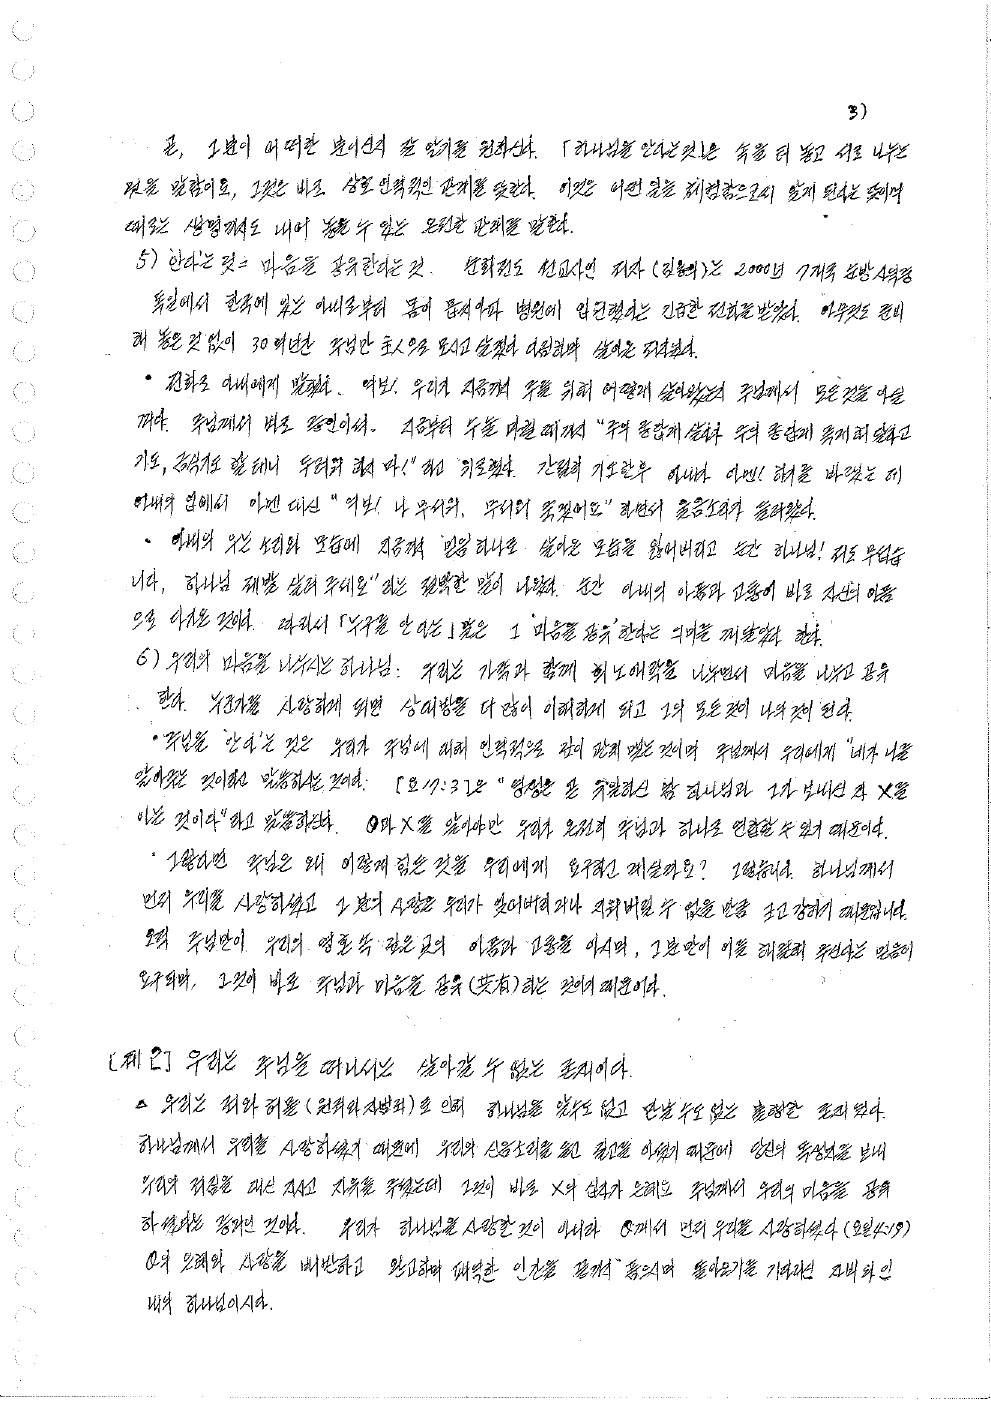 3)
곧, 그분이 어떠한 분이신지 잘 알기를 원하신다. 「하나님을 안다는 것」은 속을 터 놓고 서로 나누는
것을 말함이요, 그것은 바로 상호 인격적인 관계를 뜻한다. 이것은 어떤 일을 체험함으로써 알게 된다는 뜻이며
때로는 생명까지도 내어 놓을 수 있는 온전한 관계를 말한다.
5) '안다'는 것 = 마음을 공유한다는 것. 선교사인 저자 는 2000년 7개국 순방
독일에서 한국에 있는 아내로부터 몸이 병원에 입원했다는 긴급한 전화를 받았다. 아무것도 준비
해 놓은 것 없이 30여년간 주님만 主人으로 모시고 살아온 저자였다.
• 전화로 아내에게 말했다. 여보! 우리가 지금까지 주를 위해 어떻게 살아왔는지 주님께서 모든 것을 아실
꺼야. 주님께서 바로 증인이셔. 지금부터 눈을 때까지 "주의 종답게 살다가 주의 종답게 죽게 해 달라고
기도, 금식기도 할테니 두려워 하지 마!"라고 위로했다. 간절히 기도한 후 아내가 아멘! 하기를 바랬는데
아내의 입에서 아멘 대신 "여보! 나 무서워, 무서워 죽겠어요" 하면서 울음소리가 들려왔다.
• 아내의 우는 소리와 모습에 지금까지 믿음 하나로 살아온 모습을 잃어버리고 순간 하나님! 저도 무섭습
니다, 하나님 제발 살려 주세요"라는 절박한 말이 나왔다. 순간 아내의 아픔과 고통이 바로 자신의 아픔
으로 다가온 것이다. 따라서 「누구를 안다는」 것은 그 '마음을 공유'한다는 의미를 깨달았다 한다.
6) 우리의 마음을 나누시는 하나님: 우리는 가족과 함께 희노애락을 나누면서 마음을 나누고 공유
한다. 누군가를 사랑하게 되면 상대방을 더 많이 이해하게 되고 그의 모든 것이 나의 것이 된다.
• 주님을 '안다'는 것은 우리가 주님에 대해 인격적으로 깊이 관계 맺는 것이며 주님께서 우리에게 "네가 나를
알아가는 것이라고 말씀하시는 것이다. [요17:3]은 "영생은 곧 유일하신 참 하나님과 그가 보내신 자 X를
아는 것이다"라고 말씀하신다. θ과 X를 알아야만 우리가 온전히 주님과 하나로 연합할 수 있기 때문이다.
• 그렇다면 주님은 왜 이렇게 힘든 것을 우리에게 요구하고 계실까요? 그렇습니다. 하나님께서
먼저 우리를 사랑하셨고 그분의 사랑은 우리가 잊어버리거나 지워버릴 수 없을 만큼 크고 강하기 때문입니다.
오직 주님만이 우리의 영혼 속 깊은 곳의 아픔과 고통을 아시며, 그분만이 이를 해결해 주신다는 믿음이
요구되며, 그것이 바로 주님과 마음을 공유(共有)하는 것이기 때문이다.
[제2] 우리는 주님을 떠나서는 살아갈 수 없는 존재이다.
△ 우리는 죄와 허물(원죄와 자범죄)로 인해 하나님을 알 수도 없고 만날 수도 없는 불행한 존재였다.
하나님께서 우리를 사랑하셨기 때문에 우리의 신음소리를 듣고 질고를 아셨기 때문에 당신의 독생자를 보내
우리의 죄짐을 대신 지시고 자유를 주셨는데 그것이 바로 X의 십자가 은혜요 주님께서 우리의 마음을 공유
하셨다는 증거인 것이다. 우리가 하나님을 사랑한 것이 아니라 θ께서 먼저 우리를 사랑하셨다 (요일4:19)
θ의 은혜와 사랑을 배반하고 완고하며 패역한 인간을 끝까지 품으시며 돌아오기를 기다리신 자비와 인
내의 하나님이시다.